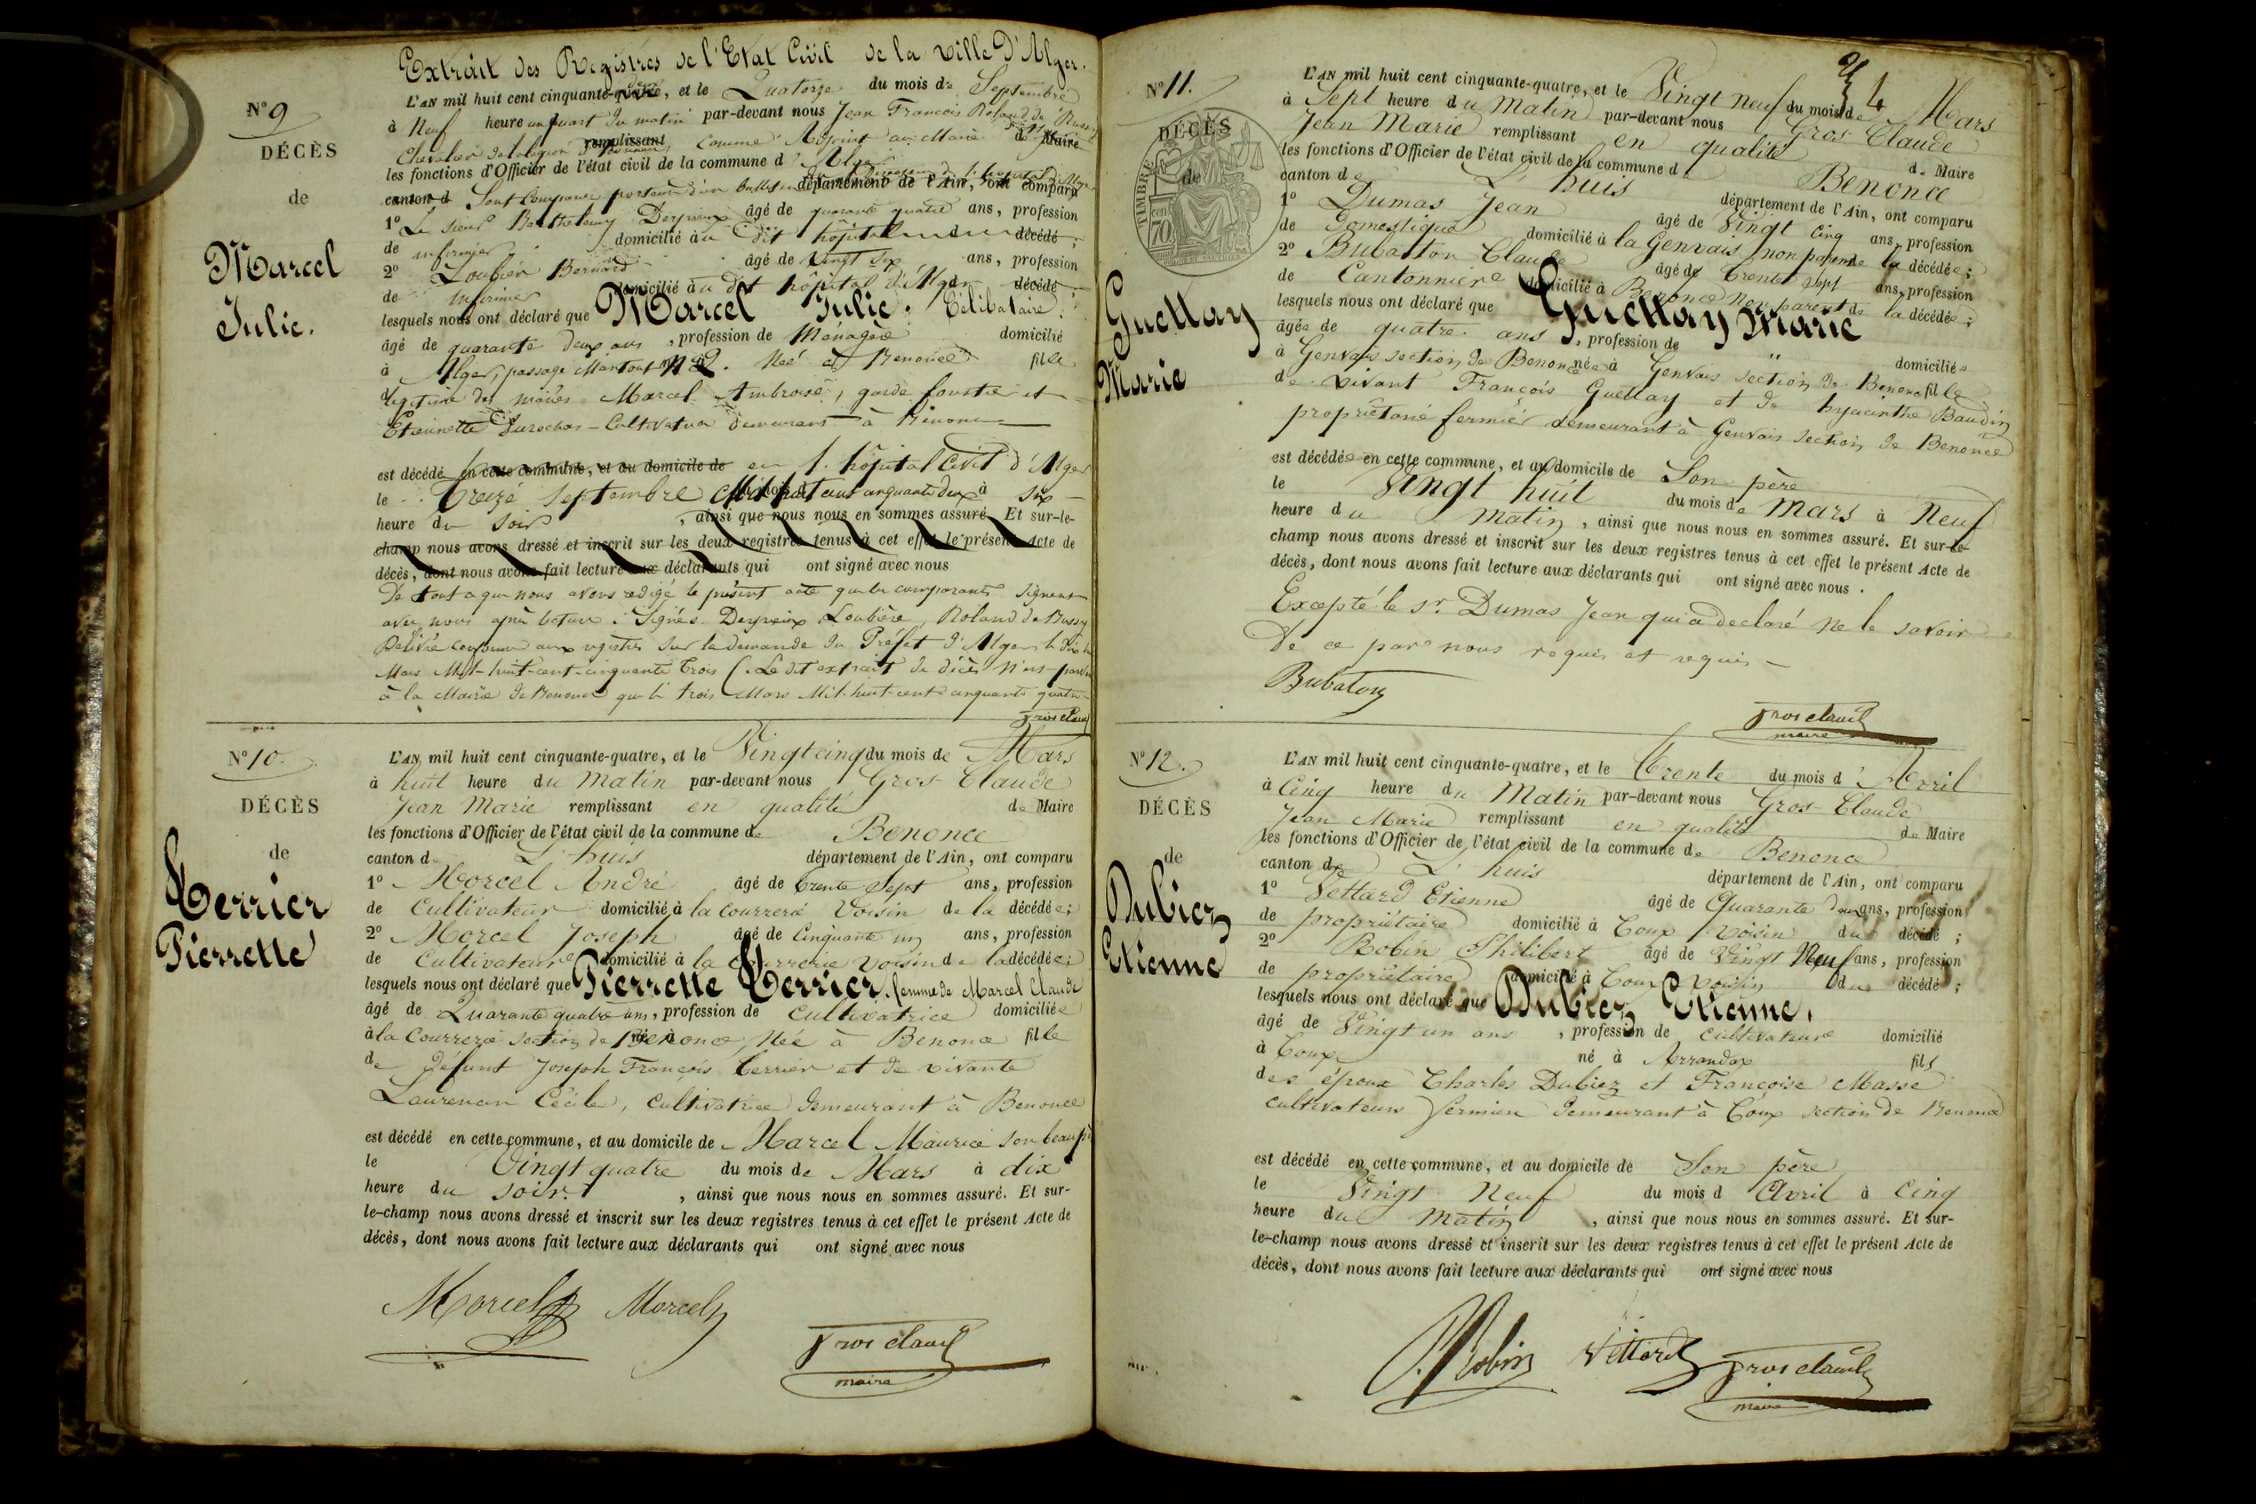 Extrait des Registres de l'Etat Civil de la Ville D'Alger.
N° 9
DÉCÈS
de
Marcel
Julie.
L'AN mil huit cent cinquante-, et le Quatorze du mois de Septembre
à Neuf heure un quart du matin par-devant nous Jean François Roland de Bussy
Chevalier de la légion remplissant comme Adjoint au Maire d Maire
les fonctions d'Officier de l'état civil de la commune d'Alger
canton d Sont comparus porteurs d'un bulletin département de l'Ain, ont comparu
1° Le sieur Barthelemy Deyrieux âgé de quarante quatre ans, profession
de infirmier domicilié au dit hôpital d décédé ;
2° Loubière Bernard âgé de vingt six ans, profession
de Infirmier domicilié au dit hôpital d'Alger décédé ;
lesquels nous ont déclaré que Marcel Julie. Célibataire.
âgé de quarante deux ans, profession de Ménagère domicilié
à Alger, passage Mantout N° 2. Née à Benonce fille
légitime des mariés Marcel Ambroise, garde forestier et
Etiennette Durochas - Cultivateur demeurant à Benonce
est décédé en cette commune, et au domicile de en l'hôpital Civil d'Alger
le Treize Septembre Mil huit cent cinquante deux à six
heure du soir, ainsi que nous nous en sommes assuré. Et sur-le-
champ nous avons dressé et inscrit sur les deux registres tenus à cet effet le présent Acte de
décès, dont nous avons fait lecture aux déclarants qui ont signé avec nous
De tout ce que nous avons rédigé le présent acte que les comparants signent
avec nous après lecture. Signés Deyrieux Loubière, Roland de Bussy
Délivré conforme aux registres sur la demande du Préfet d'Alger le dix
Mars Mil-huit-cent-cinquante trois (. Le dit extrait de décès n'est parvenu
à la Mairie de Benonce que le trois Mars Mil-huit-cent cinquante quatre
Gros claude
N° 10.
DÉCÈS
de
Terrier
Pierrette
L'AN mil huit cent cinquante-quatre, et le Vingt cinq du mois de Mars
à huit heure du Matin par-devant nous Gros Claude
Jean Marie remplissant en qualité de Maire
les fonctions d'Officier de l'état civil de la commune de Benonce
canton de L'huis département de l'Ain, ont comparu
1° Morcel André âgé de trente sept ans, profession
de Cultivateur domicilié à la Courrerie Voisin de la décédée;
2° Morcel Joseph âgé de Cinquante un ans, profession
de Cultivateur domicilié à la Courrerie voisin de la décédée;
lesquels nous ont déclaré que Pierrette Terrier, femme de Marcel Claude
âgé de Quarante quatre ans, profession de Cultivatrice domiciliée
à la Courrerie section de Benonce, Née à Benonce fille
de défunt Joseph François Terrier et de vivante
Laurencin Cécile, cultivatrice demeurant à Benonce
est décédé en cette commune, et au domicile de Marcel Maurice son beau père
le Vingt quatre du mois de Mars à dix
heure du soir, ainsi que nous nous en sommes assuré. Et sur-
le-champ nous avons dressé et inscrit sur les deux registres tenus à cet effet le présent Acte de
décès, dont nous avons fait lecture aux déclarants qui ont signé avec nous
Morcel Morcel
Gros claude
maire
24
N° 11.
DÉCÈS
de
TIMBRE
cen
70
Guettay
Marie
L'AN mil huit cent cinquante-quatre, et le Vingt neuf du mois de Mars
à Sept heure du Matin par-devant nous Gros Claude
Jean Marie remplissant en qualité de Maire
les fonctions d'Officier de l'état civil de la commune d Benonce
canton de L'huis département de l'Ain, ont comparu
1° Dumas Jean âgé de Vingt cinq ans, profession
de Domestique domicilié à la Genvais non parent de la décédée;
2° Bubaton Claude âgé de trente sept ans, profession
de Cantonnier domicilié à Benonce non parent de la décédée;
lesquels nous ont déclaré que Guettay Marie
âgée de quatre ans, profession de " domiciliée
à Genvais section de Benonce née à Genvais section de Benonce fille
de vivant François Guettay et de hyacinthe Baudin
propriétaire fermier demeurant à Genvais section de Benonce
est décédée en cette commune, et au domicile de Son père
le Vingt huit du mois de Mars à Neuf
heure du Matin, ainsi que nous nous en sommes assuré. Et sur-le-
champ nous avons dressé et inscrit sur les deux registres tenus à cet effet le présent Acte de
décès, dont nous avons fait lecture aux déclarants qui ont signé avec nous.
Excepté le sr. Dumas Jean qui a déclaré ne le savoir
de ce par nous requis et requis -
Bubaton
Gros claude
maire
N° 12.
DÉCÈS
de
Dubiez
Etienne
L'AN mil huit cent cinquante-quatre, et le Trente du mois d'Avril
à Cinq heure du Matin par-devant nous Gros Claude
Jean Marie remplissant en qualité de Maire
les fonctions d'Officier de l'état civil de la commune de Benonce
canton de L'huis département de l'Ain, ont comparu
1° Vettard Etienne âgé de Quarante deux ans, profession
de propriétaire domicilié à Coux voisin du décédé ;
2° Robin Philibert âgé de Vingt Neuf ans, profession
de propriétaire domicilié à Coux voisin du décédé ;
lesquels nous ont déclaré que Dubiez Etienne.
âgé de Vingt un ans, profession de cultivateur domicilié
à Coux né à Arrandax fils
des époux Charles Dubiez et Françoise Masse
cultivateurs fermier demeurant à Coux section de Benonce
est décédé en cette commune, et au domicile de Son père
le Vingt Neuf du mois d Avril à Cinq
heure du Matin, ainsi que nous nous en sommes assuré. Et sur-
le-champ nous avons dressé et inscrit sur les deux registres tenus à cet effet le présent Acte de
décès, dont nous avons fait lecture aux déclarants qui ont signé avec nous
P. Robin Vettard Gros claude
maire